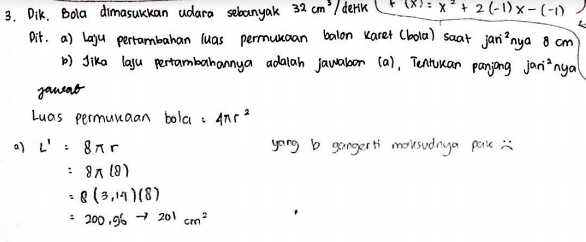 3. Dik. Bola dimasukkan udara sebanyak 32 cm³/detik
f (x) = x² + 2 (-1) x - (-1)
Dit. a) Laju pertambahan luas permukaan balon karet (bola) saat jari²nya 8 cm
b) Jika laju pertambahannya adalah jawaban (a), Tentukan panjang jari²nya
jawab
Luas permukaan bola = 4πr²
a) L' = 8πr
= 8π (8)
= 8 (3,14)(8)
= 200,96 → 201 cm²
yang b gangerti maksudnya pak :(